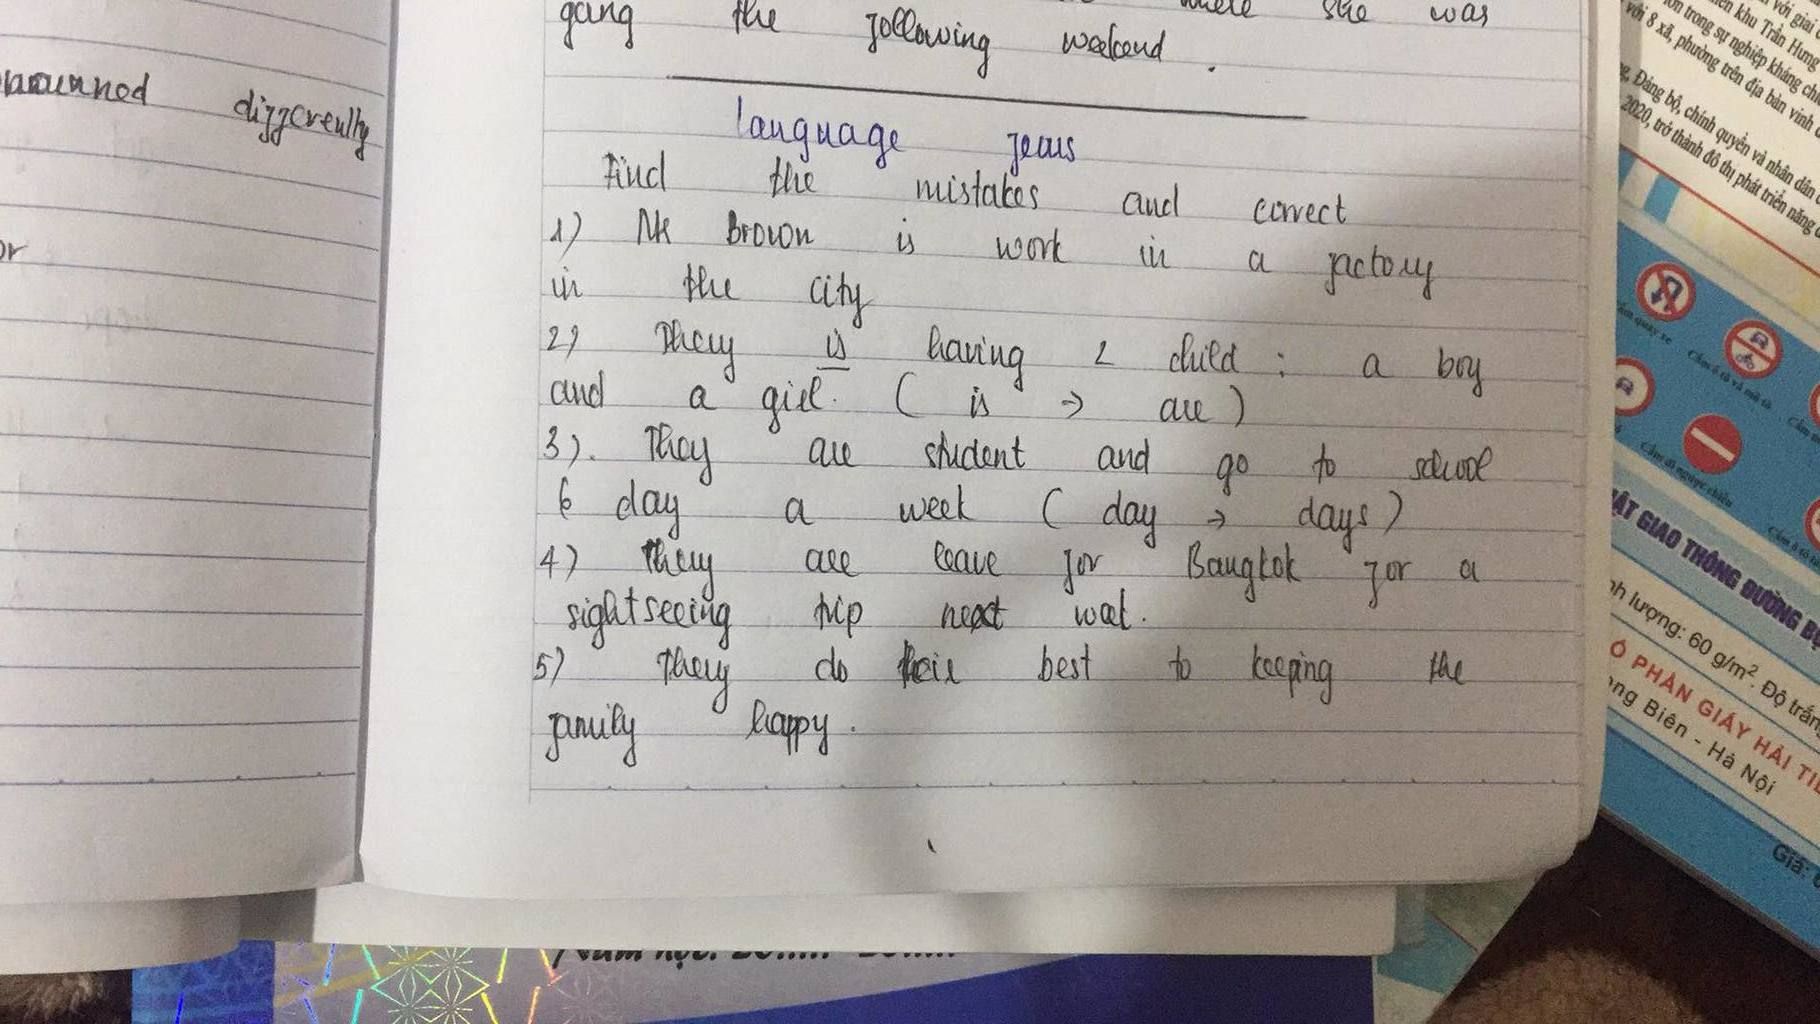 where she was
gang the following weekend.
differently
or
language
Find the mistakes and correct
1) Mr Brown is work in a factory
in the city
2) They is having 2 child : a boy
and a girl. ( is → are )
3). They are student and go to school
6 day a week ( day → days )
4) They are leave for Bangkok for a
sightseeing trip next
5) They do their best to keeping the
family happy.
với giai
khu Trần Hưng
trong sự nghiệp kháng
với 8 xã, phường trên địa bàn vinh
Đảng bộ, chính quyền và nhân dân
2020, trở thành đô thị phát triển năng
Cấm ô tô và mô tô
Cấm đi ngược chiều
GIAO THÔNG ĐƯỜNG
lượng: 60 g/m². Độ trắng
PHẦN GIẤY HẢI
Biên - Hà Nội
Giá: